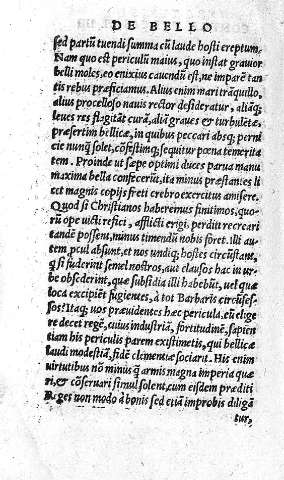 DE BELLO
sed partū tuendi summa cū laude hosti ereptum.
Nam quo est periculū maius, quo instat grauior
belli moles, eo enixiu cauendū est, ne imparē tan
tis rebus præficiamus. Alius enim mari trāquillo,
alius procelloso nauis rector desideratur, aliāq;
leues res flagitāt curā, aliā graues & turbulētæ,
præsertim bellicæ, in quibus peccari absq; perni
cie nunq̄ solet, cōfestimq; sequitur pœna temerita
tem. Proinde ut sæpe optimi duces parua manu
maxima bella confecerūt, ita minus præstantes li
cet magnis copijs freti crebro exercitus amisere.
Quod si Christianos haberemus finitimos, quo-
rū ope uicti refici, afflicti erigi, perditi recreari
tandē possent, minus timendū nobis foret. illi au-
tem pcul absunt, et nos undiq; hostes circūstant,
q̄ si fuderint semel nostros, aut clausos hac in ur-
be obsederint, quæ subsidia illi habebūt, uel quæ
loca excipiēt fugientes, à tot Barbaris circūses-
sos? Itaq; uos præuidentes hæc pericula, eū elige
re decet regē, cuius industriā, fortitudinē, sapien
tiam his periculis parem existimetis, qui bellicæ
laudi modestiā, fidē clementiæ sociarit. His enim
uirtutibus nō minus q̄ armis magna imperia quæ
ri, & cōseruari simul solent, cum eisdem præditi
Reges non modo à bonis sed etiā improbis diligā
tur,